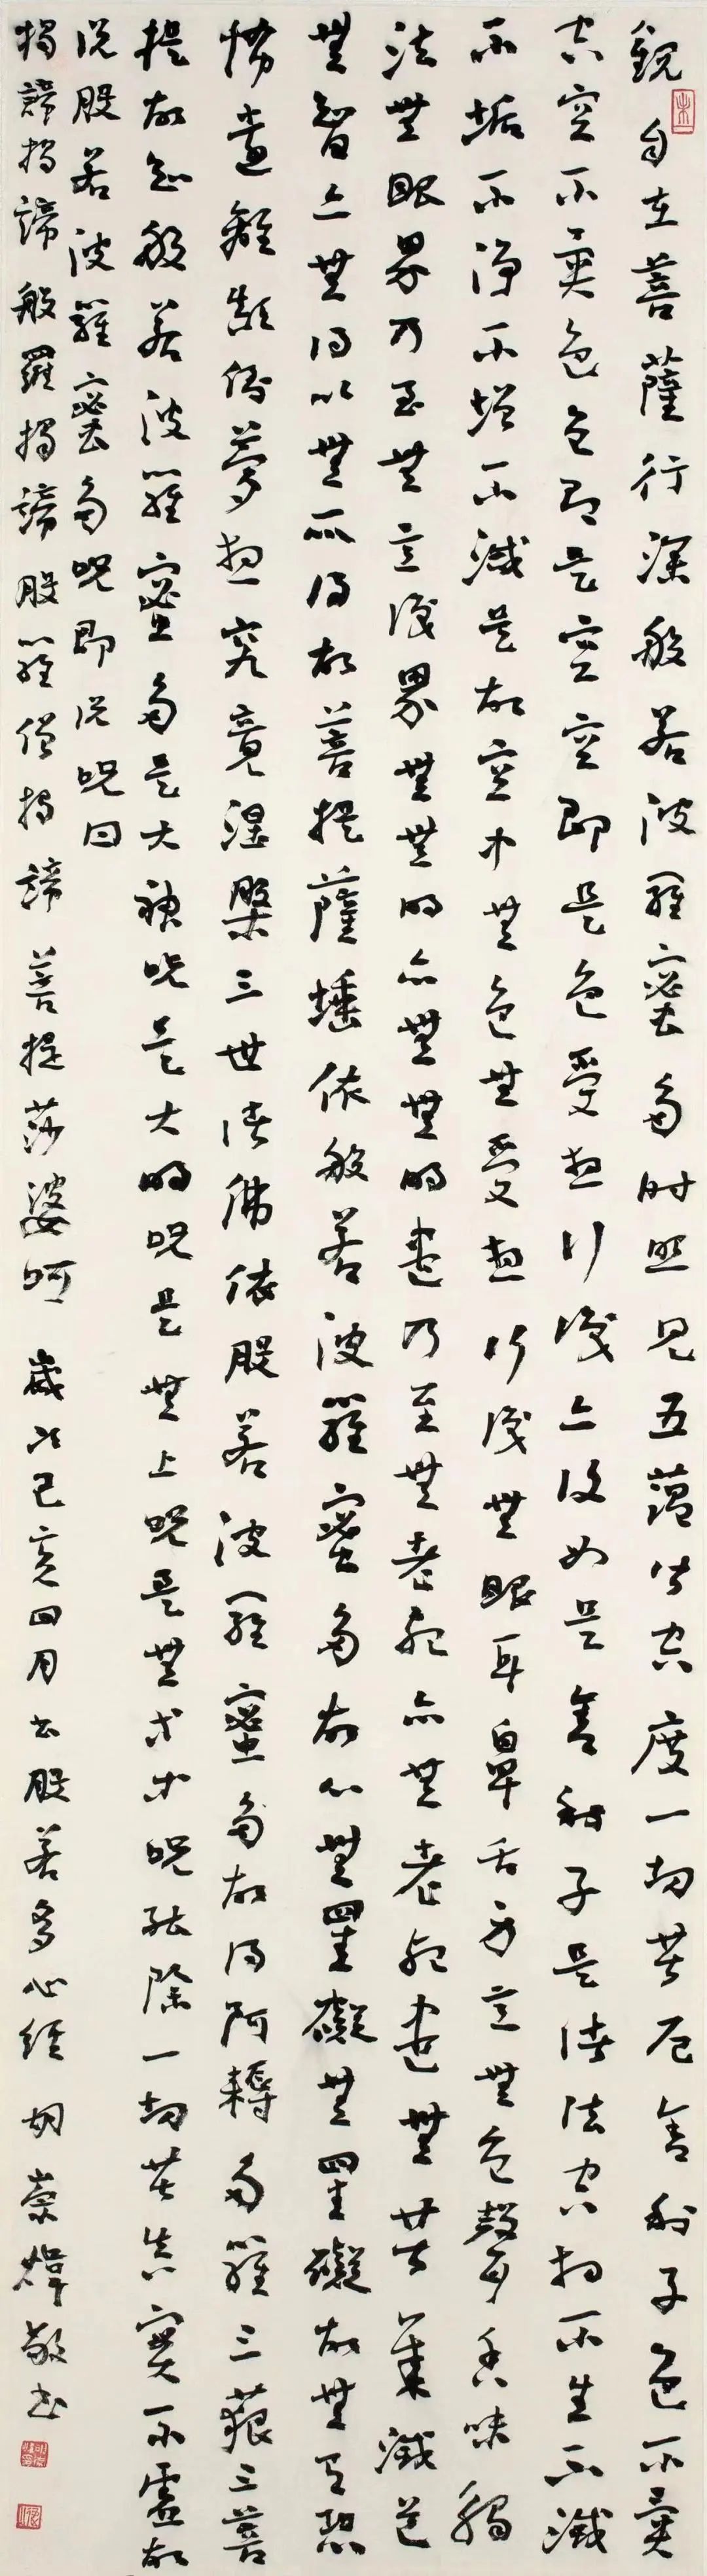 觀自在菩薩行深般若波羅蜜多時照見五蘊皆空度一切苦厄舍利子色不異
空空不異色色即是空空即是色受想行識亦復如是舍利子是諸法空相不生不滅
不垢不淨不增不減是故空中無色無受想行識無眼耳鼻舌身意無色聲香味觸
法無眼界乃至無意識界無無明亦無無明盡乃至無老死亦無老死盡無苦集滅道
無智亦無得以無所得故菩提薩埵依般若波羅蜜多故心無罣礙無罣礙故無有恐
怖遠離顛倒夢想究竟涅槃三世諸佛依般若波羅蜜多故得阿耨多羅三藐三菩
提故知般若波羅蜜多是大神呪是大明呪是無上呪是無等等呪能除一切苦真實不虛故
說般若波羅蜜多呪即說呪曰
揭諦揭諦般羅揭諦般羅僧揭諦菩提莎婆呵 歲次己亥四月書般若多心經 胡崇煒敬書